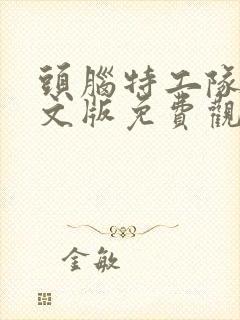 頭腦特工隊
文版免費觀
金敏